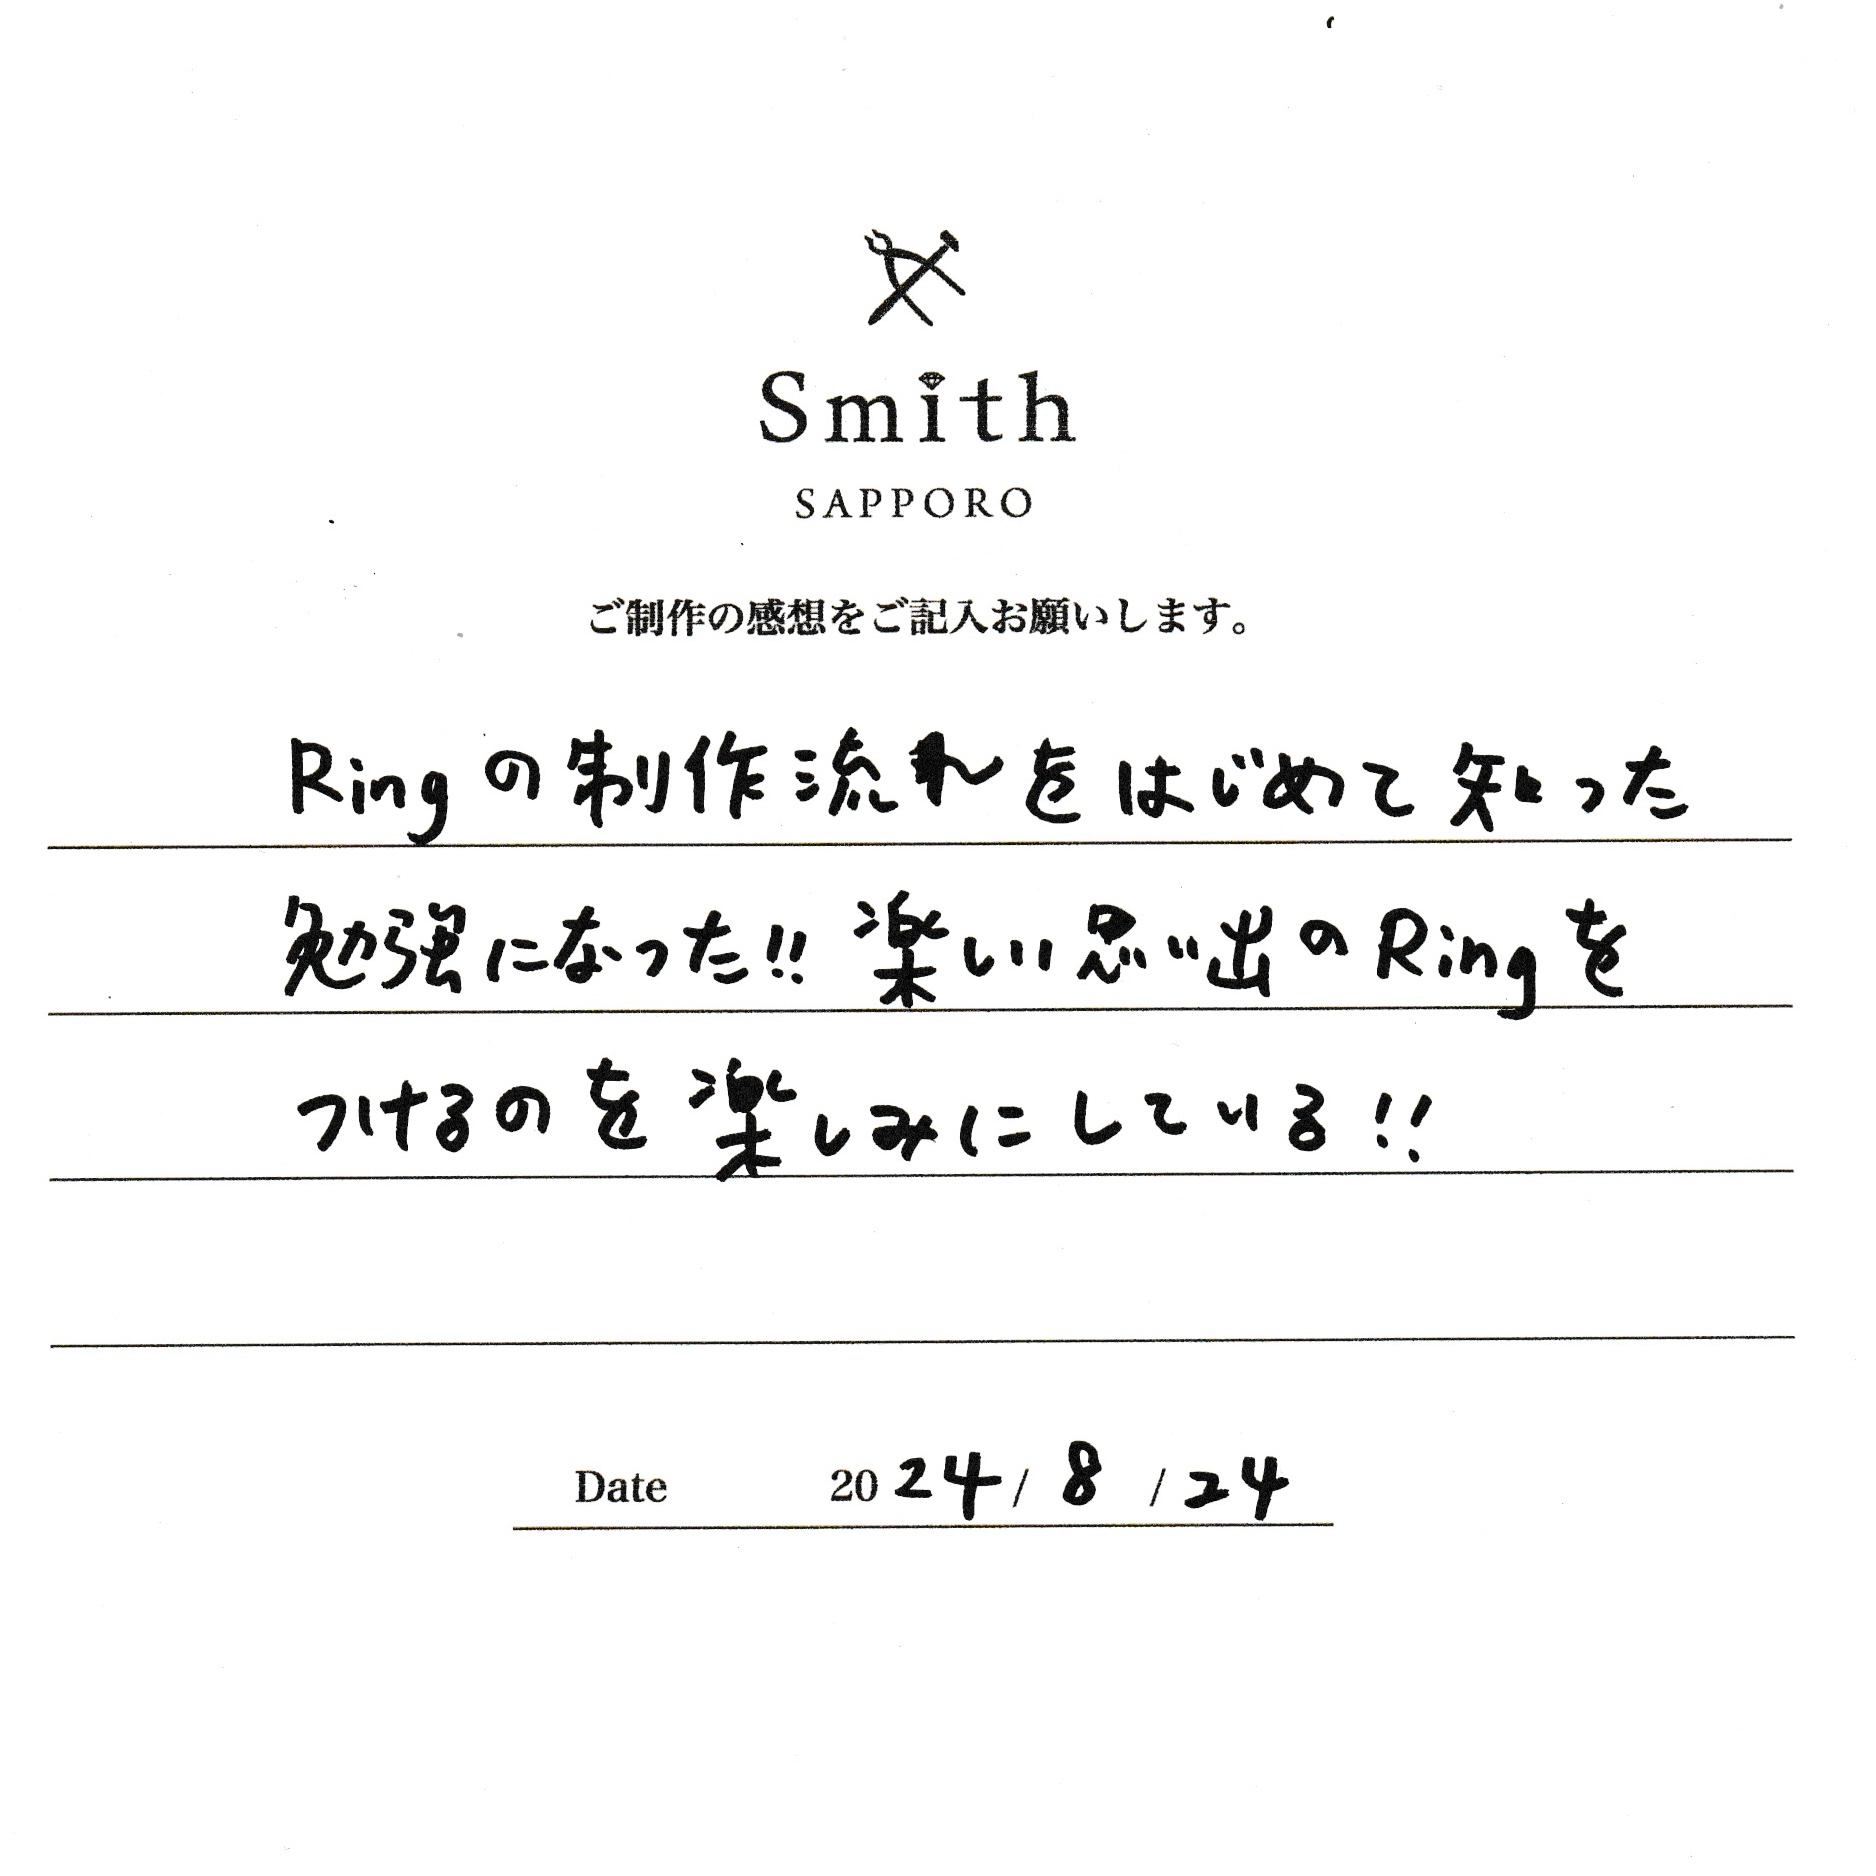 Smith
SAPPORO
ご制作の感想をご記入お願いします。
Ringの制作流れをはじめて知った
勉強になった!! 楽しい思い出のRingを
つけるのを楽しみにしている!!
Date 2024/8/24